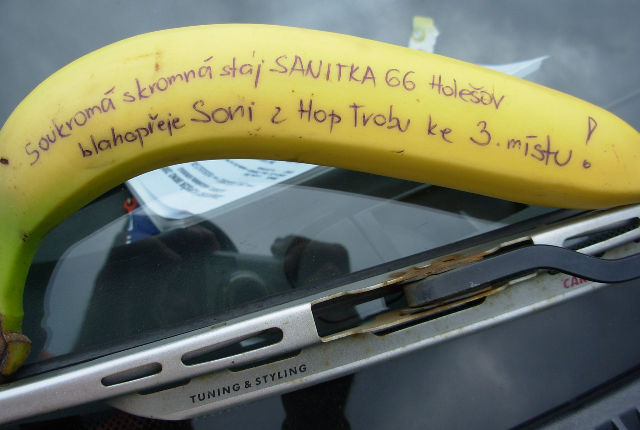 Soukromá skromná stáj SANITKA 66 Holešov
blahopřeje Soni z Hop Trobu ke 3. místu!
TUNING & STYLING